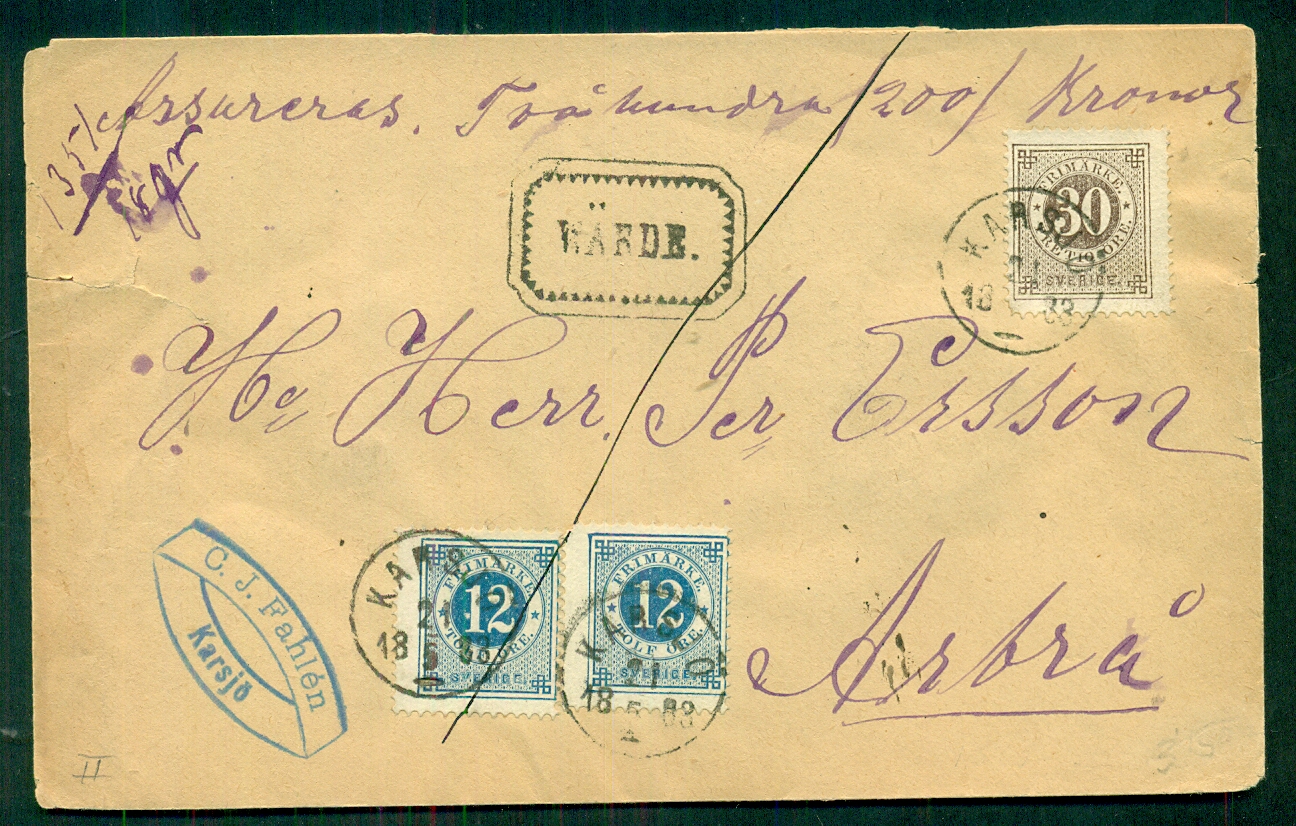 Assureras. Tvåhundra /200/ Kronor
135/
18 gr
WÄRDE.
FRIMÄRKE.
30
TRETTIO ÖRE.
SVERIGE.
KARSJÖ
21
18 83
Hr Herr. Pr Ersson
Arbrå
FRIMÄRKE.
12
TOLF ÖRE.
SVERIGE.
KARSJÖ
21
18 5 83
FRIMÄRKE.
12
TOLF ÖRE.
SVERIGE.
KARSJÖ
21
18 5 83
C. J. Fahlén
Karsjö
II